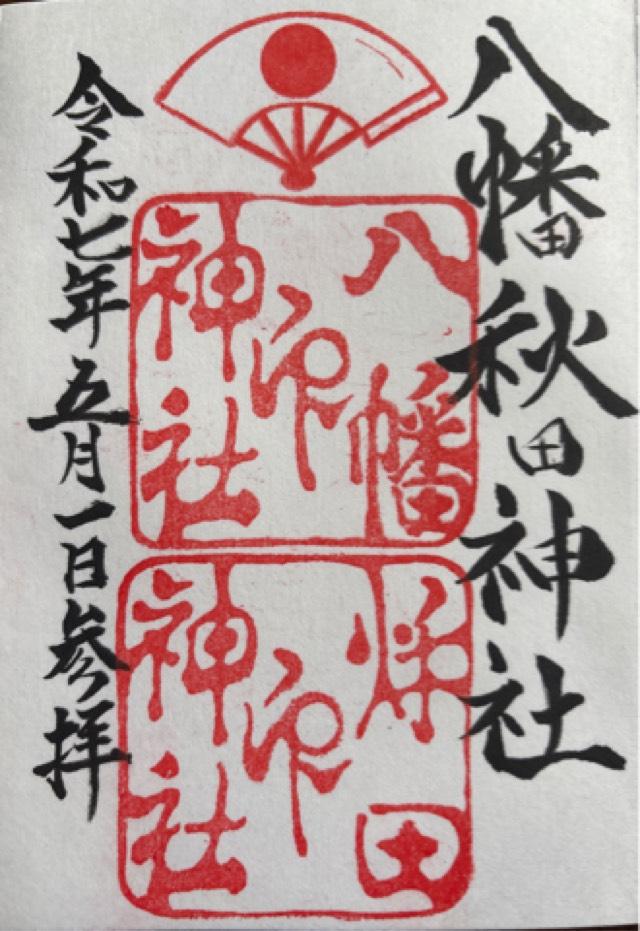 八幡秋田神社
八幡
神印
神社
秋田
神印
神社
令和七年五月一日参拝